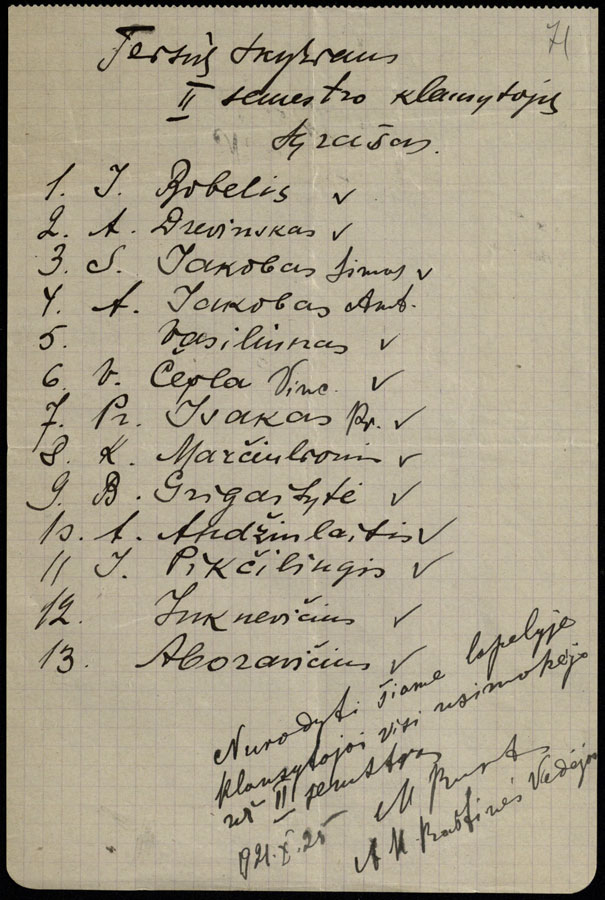 71
Teisių skyriaus
II semestro klausytojų
sąrašas.
1. J. Bobelis ✓
2. A. Drevinskas ✓
3. S. Jakobas Simas ✓
4. A. Jakobas Ant.
5. Vasiliunas ✓
6 V. Čepla Vinc. ✓
7. Pr. Isakas Pr. ✓
8. K. Marčiulionis ✓
9. B. Grigaitytė ✓
10. A. Andžiulaitis ✓
11 J. Pikčilingis ✓
12. Juknevičius ✓
13. Aboravičius ✓
Nurodyti šiame lapelyje
klausytojai visi užsimokėjo
už II semestrą
1921.X.25 M
A. K. Raštinės Vedėjas